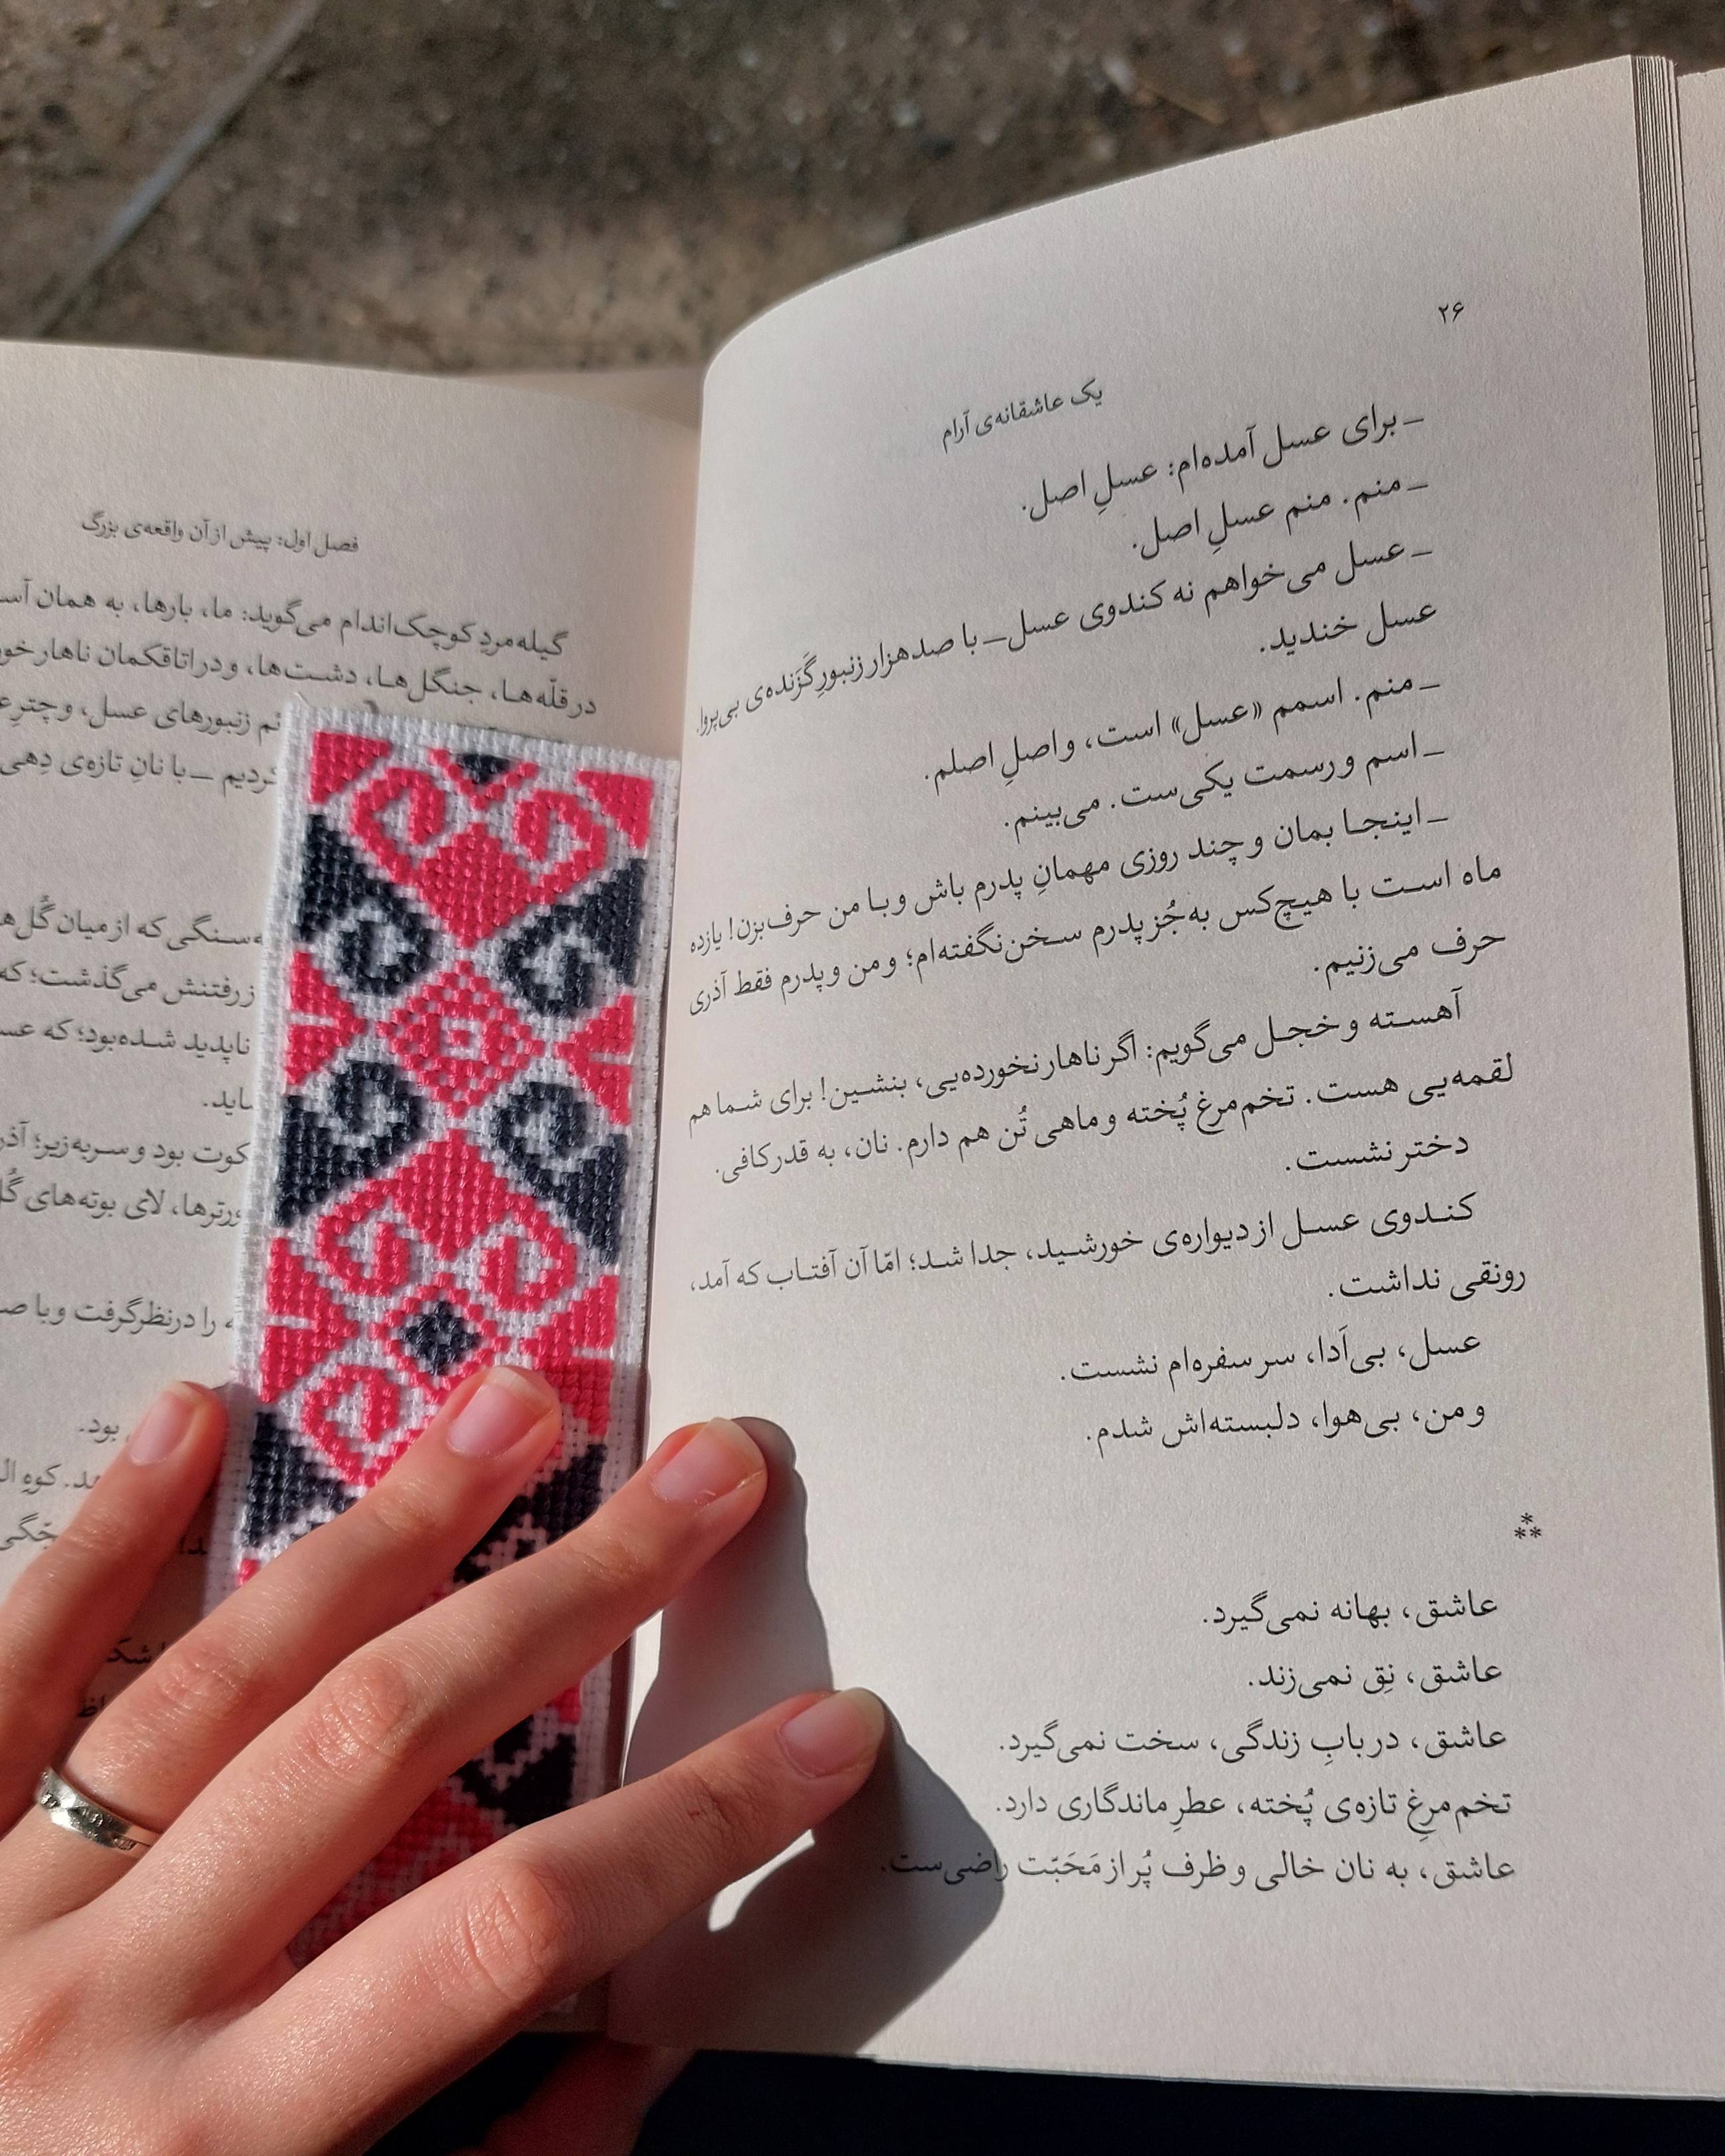 ۲۶
یک عاشقانه‌ی آرام
ـ برای عسل آمده‌ام: عسلِ اصل.
ـ منم. منم عسلِ اصل.
ـ عسل می‌خواهم نه کندوی عسل ـ با صدهزار زنبورِ گَزَنده‌ی بی‌پروا.
عسل خندید.
ـ منم. اسمم «عسل» است، و اصلِ اصلم.
ـ اسم و رسمت یکی‌ست. می‌بینم.
ـ اینجا بمان و چند روزی مهمانِ پدرم باش و با من حرف بزن! یازده
ماه است با هیچ‌کس به‌جُز پدرم سخن نگفته‌ام؛ و من و پدرم فقط آذری
حرف می‌زنیم.
آهسته و خجل می‌گویم: اگر ناهار نخورده‌یی، بنشین! برای شما هم
لقمه‌یی هست. تخم‌مرغ پُخته و ماهی تُن هم دارم. نان، به قدر کافی.
دختر نشست.
کندوی عسل از دیواره‌ی خورشید، جدا شد؛ امّا آن آفتاب که آمد،
رونقی نداشت.
عسل، بی‌اَدا، سر سفره‌ام نشست.
و من، بی‌هوا، دلبسته‌اش شدم.
⁂
عاشق، بهانه نمی‌گیرد.
عاشق، نِق نمی‌زند.
عاشق، در بابِ زندگی، سخت نمی‌گیرد.
تخم‌مرغِ تازه‌ی پُخته، عطرِ ماندگاری دارد.
عاشق، به نان خالی و ظرف پُر از مَحَبّت راضی‌ست.
فصل اول: پیش از آن واقعه‌ی بزرگ
گیله‌مردِ کوچک‌اندام می‌گوید: ما، بارها، به همان
در قلّه‌ها، جنگل‌ها، دشت‌ها، و در اتاقکمان ناهار
زنبورهای عسل، و چترِ
ـ با نانِ تازه‌ی دِهی
که از میان گُل
رفتنش می‌گذشت؛ که
ناپدید شده بود؛ که
بود و سربه‌زیر؛
لای بوته‌های
را در نظر گرفت و با
بود.
کوهِ